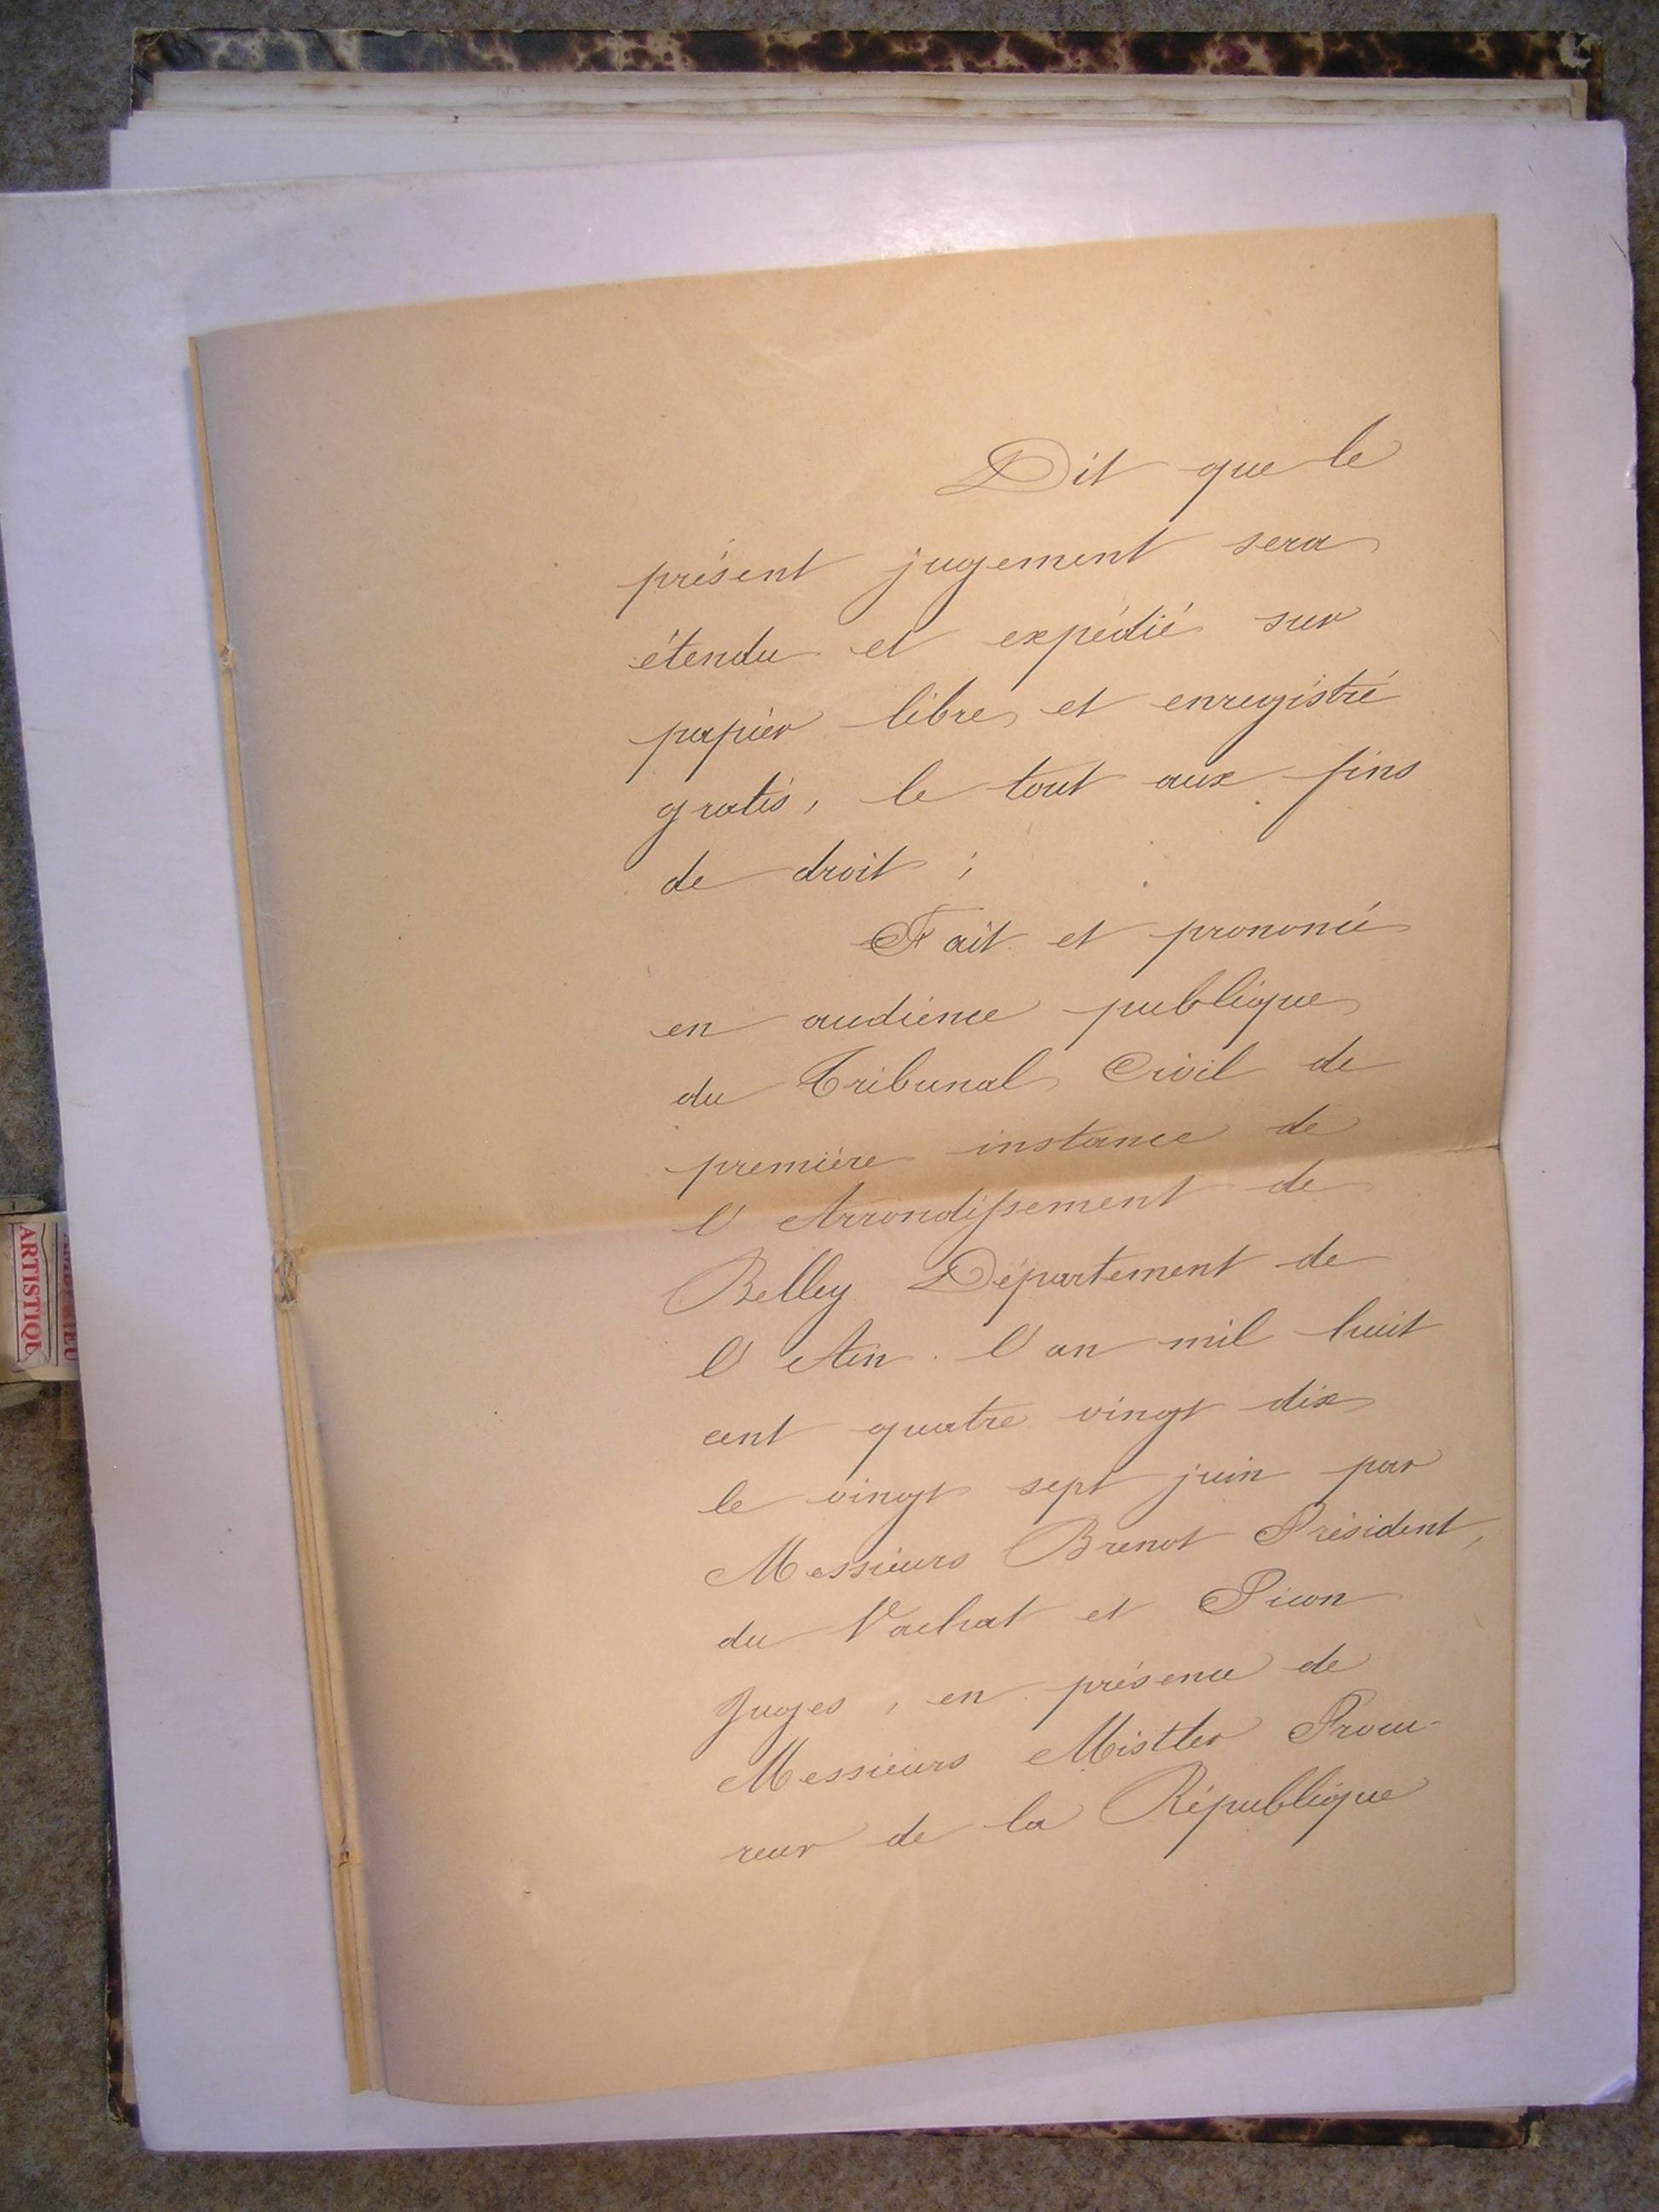 Dit que le
présent jugement sera
étendu et expédié sur
papier libre et enregistré
gratis, le tout aux fins
de droit ;
Fait et prononcé
en audience publique
du Tribunal Civil de
première instance de
l'Arrondissement de
Belley Département de
l'Ain. l'an mil huit
cent quatre vingt dix
le vingt sept juin par
Messieurs Brenot Président,
du Vachat et Picon
Juges, en présence de
Messieurs Mistler Procu-
reur de la République
ARTISTIQU